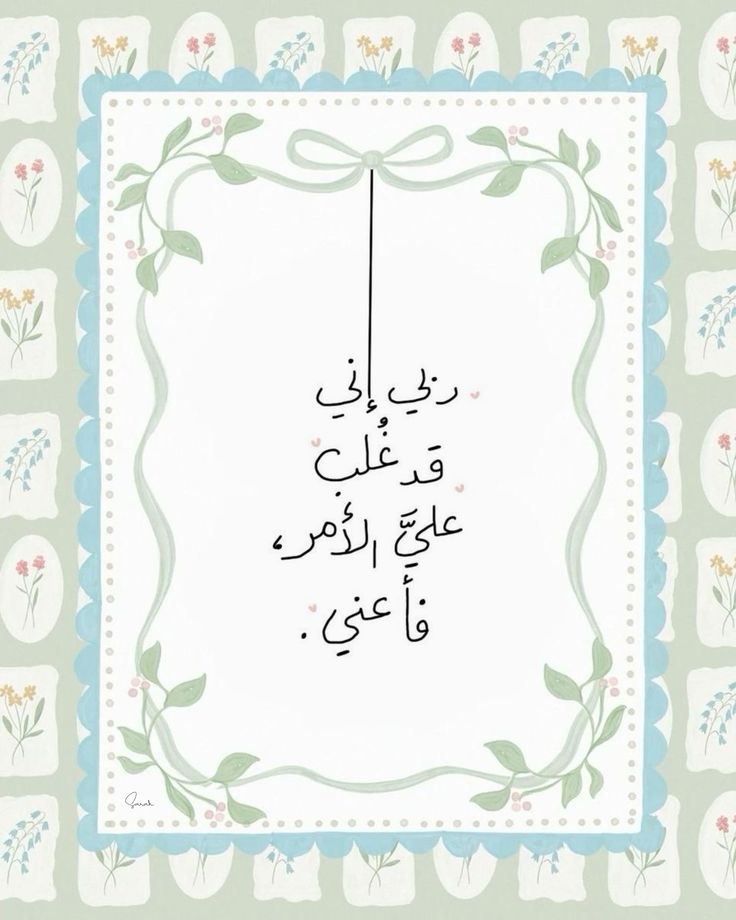 ربي إني
قد غُلب
عليَّ الأمر،
فأعني.
Sarah